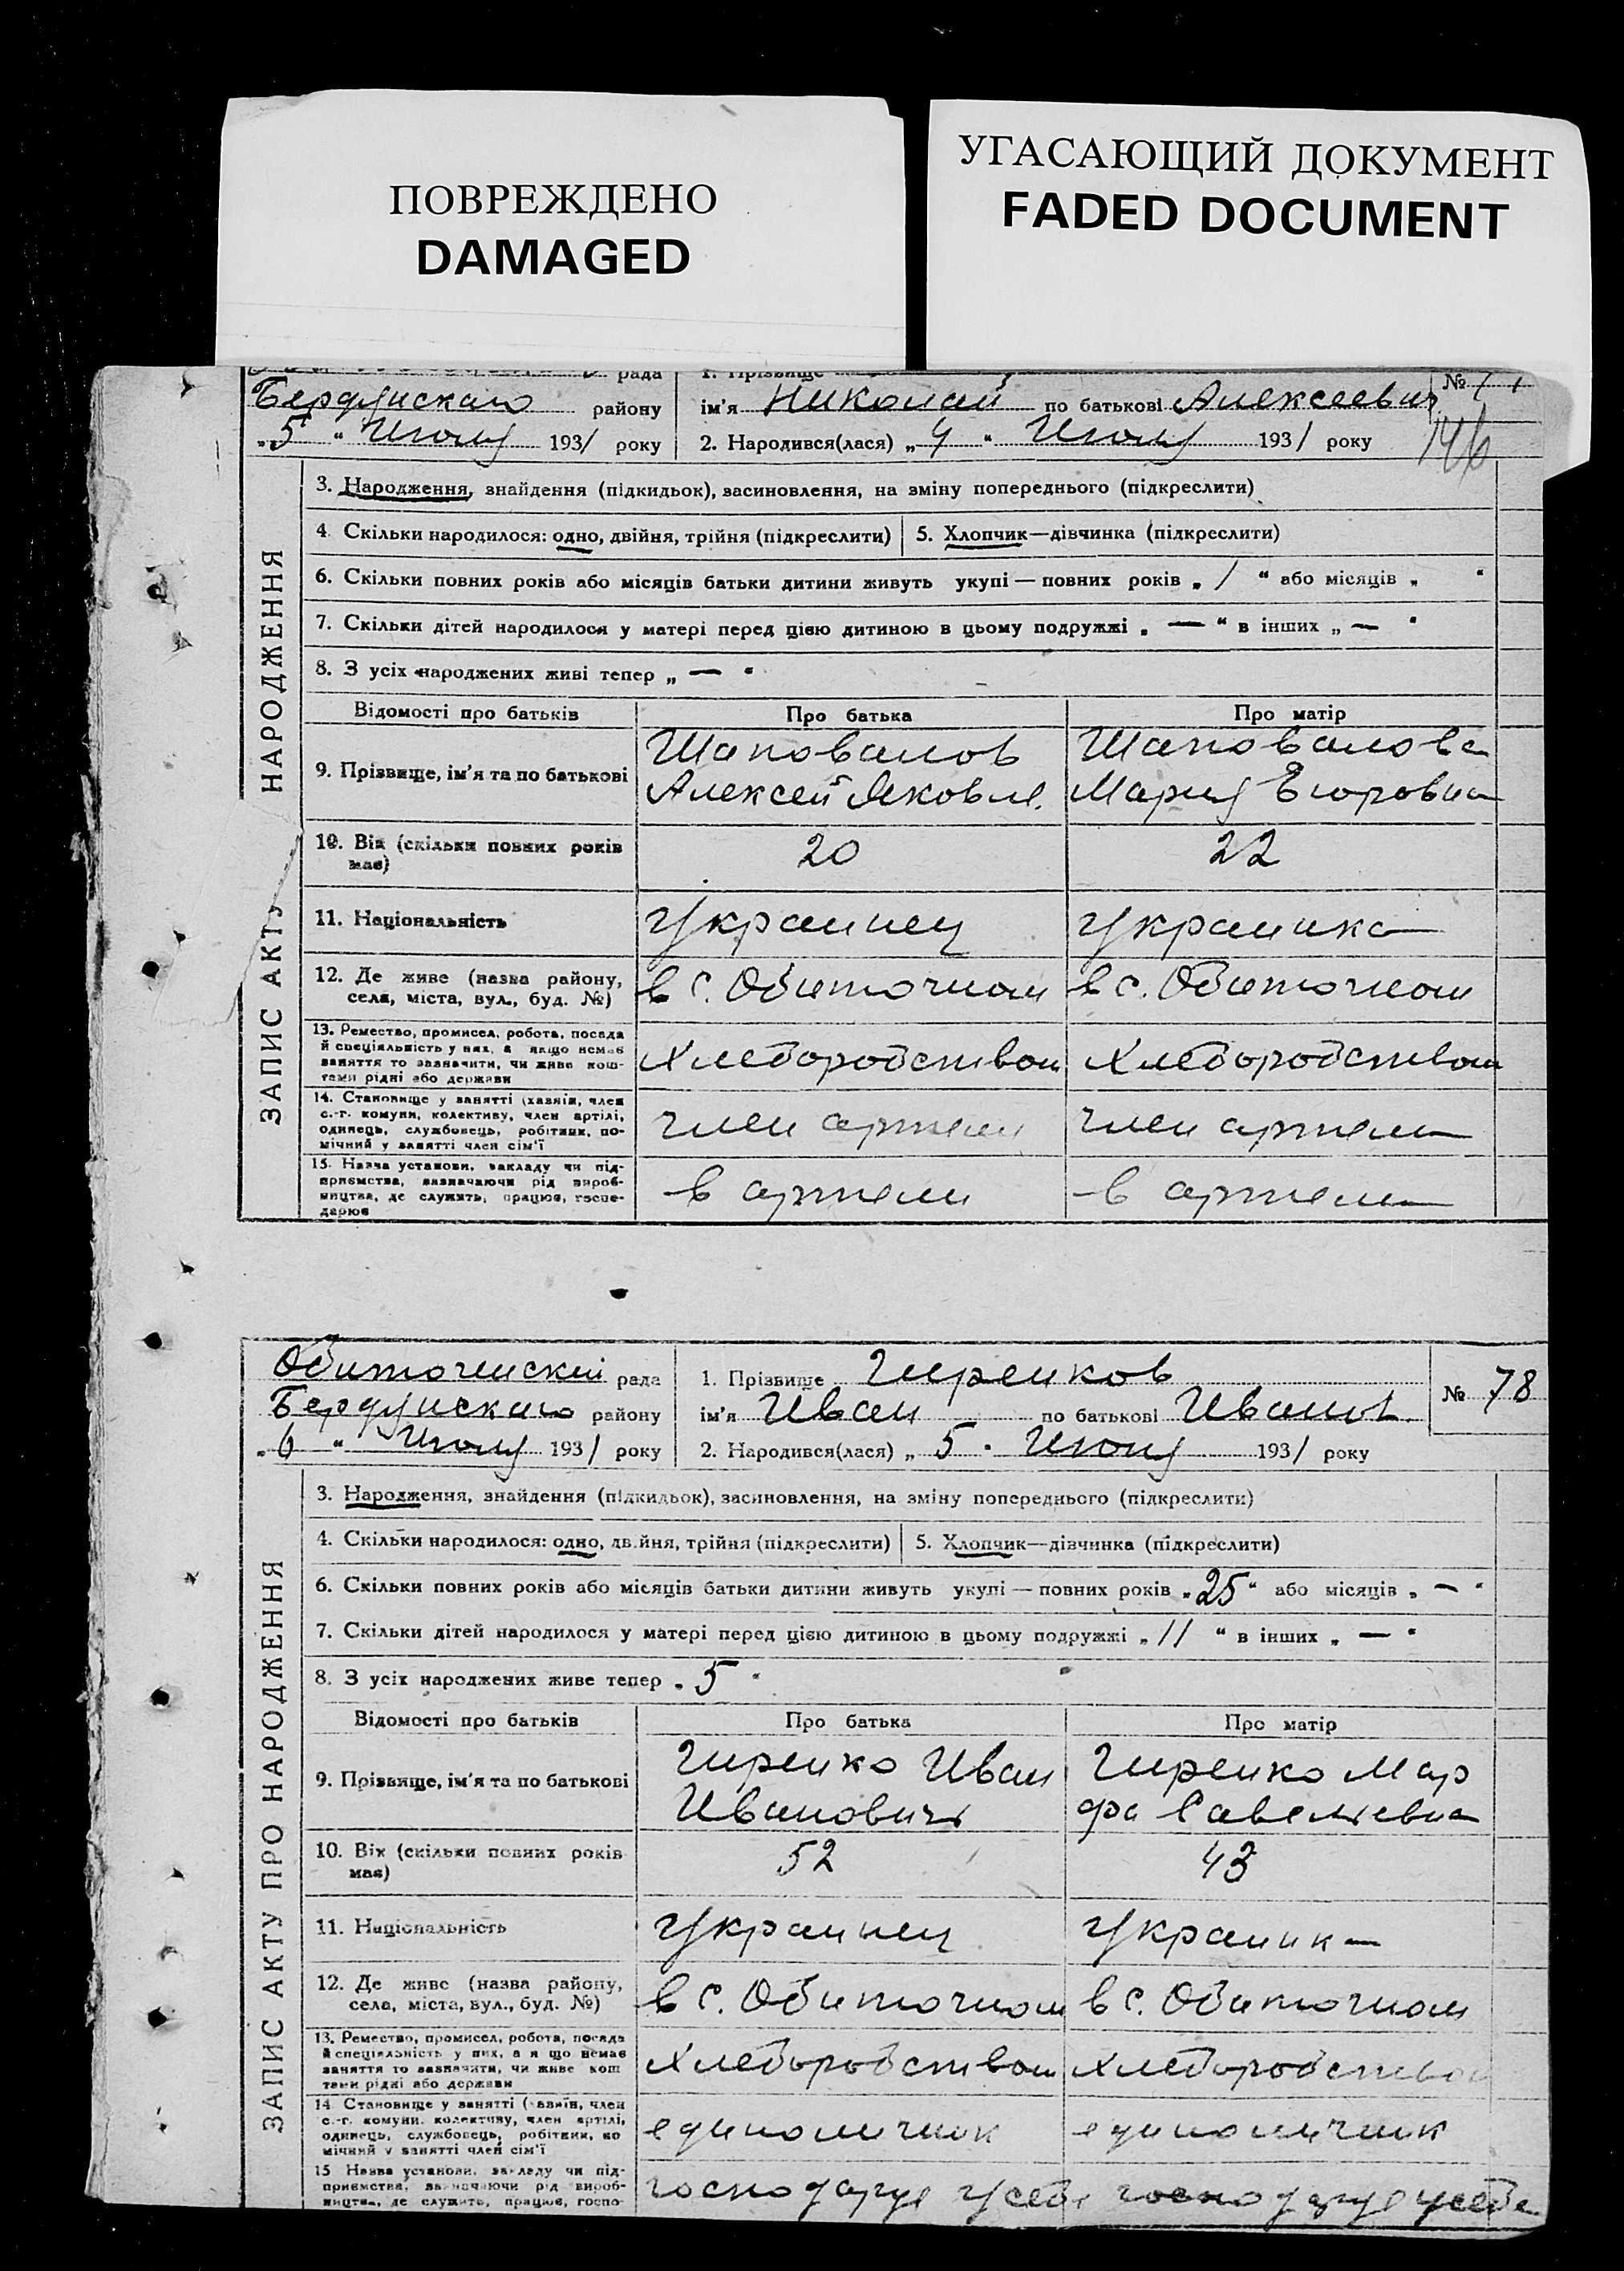 ПОВРЕЖДЕНО
DAMAGED
УГАСАЮЩИЙ ДОКУМЕНТ
FADED DOCUMENT
рада
1. Прізвище
№
Бердянскаго району
ім'я Николай по батькові Алексеевич
146
„5“ Июля 1931 року
2. Народився(лася) „4“ Июля 1931 року
ЗАПИС АКТУ НАРОДЖЕННЯ
3. Народження, знайдення (підкидьок), засиновлення, на зміну попереднього (підкреслити)
4. Скільки народилося: одно, двійня, трійня (підкреслити)
5. Хлопчик—дівчинка (підкреслити)
6. Скільки повних років або місяців батьки дитини живуть укупі — повних років „1“ або місяців „ “
7. Скільки дітей народилося у матері перед цією дитиною в цьому подружжі „—“ в інших „—“
8. З усіх народжених живі тепер „—“
Відомості про батьків
Про батька
Про матір
9. Прізвище, ім'я та по батькові
Шаповалов
Алексей Яковл.
Шаповалова
Мария Егоровна
10. Вік (скільки повних років
має)
20
22
11. Національність
Украинец
Украинка
12. Де живе (назва району,
села, міста, вул., буд. №)
в с. Обиточном
в с. Обиточном
13. Ремество, промисел, робота, посада
й спеціяльність у них, а якщо немає
заняття то зазначити, чи живе кош-
тами рідні або держави
Хлебородством
Хлебородством
14. Становище у занятті (хазяїн, член
с.-г. комуни, колективу, член артілі,
одинець, службовець, робітник, по-
мічний у занятті член сім'ї
член артели
член артели
15. Назва установи, закладу чи під-
приємства, зазначаючи рід вироб-
ництва, де служить, працює, госпо-
дарює
в артели
в артели
Обиточенской рада
1. Прізвище Гиренков
№ 78
Бердянскаго району
ім'я Иван по батькові Иванов.
„6“ Июля 1931 року
2. Народився(лася) „5“ Июля 1931 року
ЗАПИС АКТУ ПРО НАРОДЖЕННЯ
3. Народження, знайдення (підкидьок), засиновлення, на зміну попереднього (підкреслити)
4. Скільки народилося: одно, двійня, трійня (підкреслити)
5. Хлопчик—дівчинка (підкреслити)
6. Скільки повних років або місяців батьки дитини живуть укупі — повних років „25“ або місяців „—“
7. Скільки дітей народилося у матері перед цією дитиною в цьому подружжі „11“ в інших „—“
8. З усіх народжених живе тепер „5“
Відомості про батьків
Про батька
Про матір
9. Прізвище, ім'я та по батькові
Гиренко Иван
Иванович
Гиренко Мар
фа Савельевна
10. Вік (скільки повних років
має)
52
43
11. Національність
Украинец
Украинк
12. Де живе (назва району,
села, міста, вул., буд. №)
в с. Обиточном
в с. Обиточном
13. Ремество, промисел, робота, посада
й спеціяльність у них, а якщо немає
заняття то зазначити, чи живе кош
тами рідні або держави
Хлебородством
Хлебородством
14. Становище у занятті (хазяїн, член
с.-г. комуни, колективу, член артілі,
одинець, службовець, робітник, по
мічний у занятті член сім'ї
единоличник
единоличник
15 Назва установи, закладу чи під-
приємства, зазначаючи рід вироб-
ництва, де служить, працює, госпо-
господаруе у себе
господаруе у себе